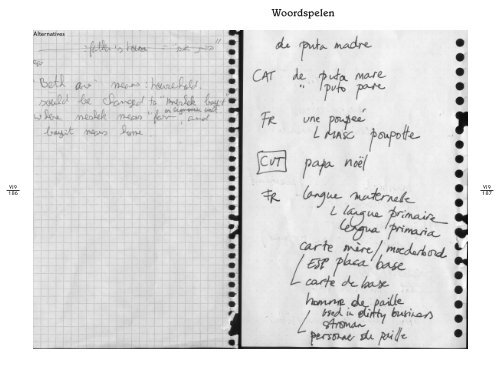 Woordspelen
Alternatives
"Beth av" means: household.
sould be changed to "mestek bayit"
where mestek means "fair", and
bayit means home.
V/9
186
de puta madre
CAT de puta mare
" puto pare
FR une poupée
MASC poupotte
CUT papa noël
FR langue maternelle
langue primaire
lengua primaria
carte mère / moederbord
ESP placa base
carte de base
homme de paille
used in dirty business
stroman
personne de paille
V/9
187